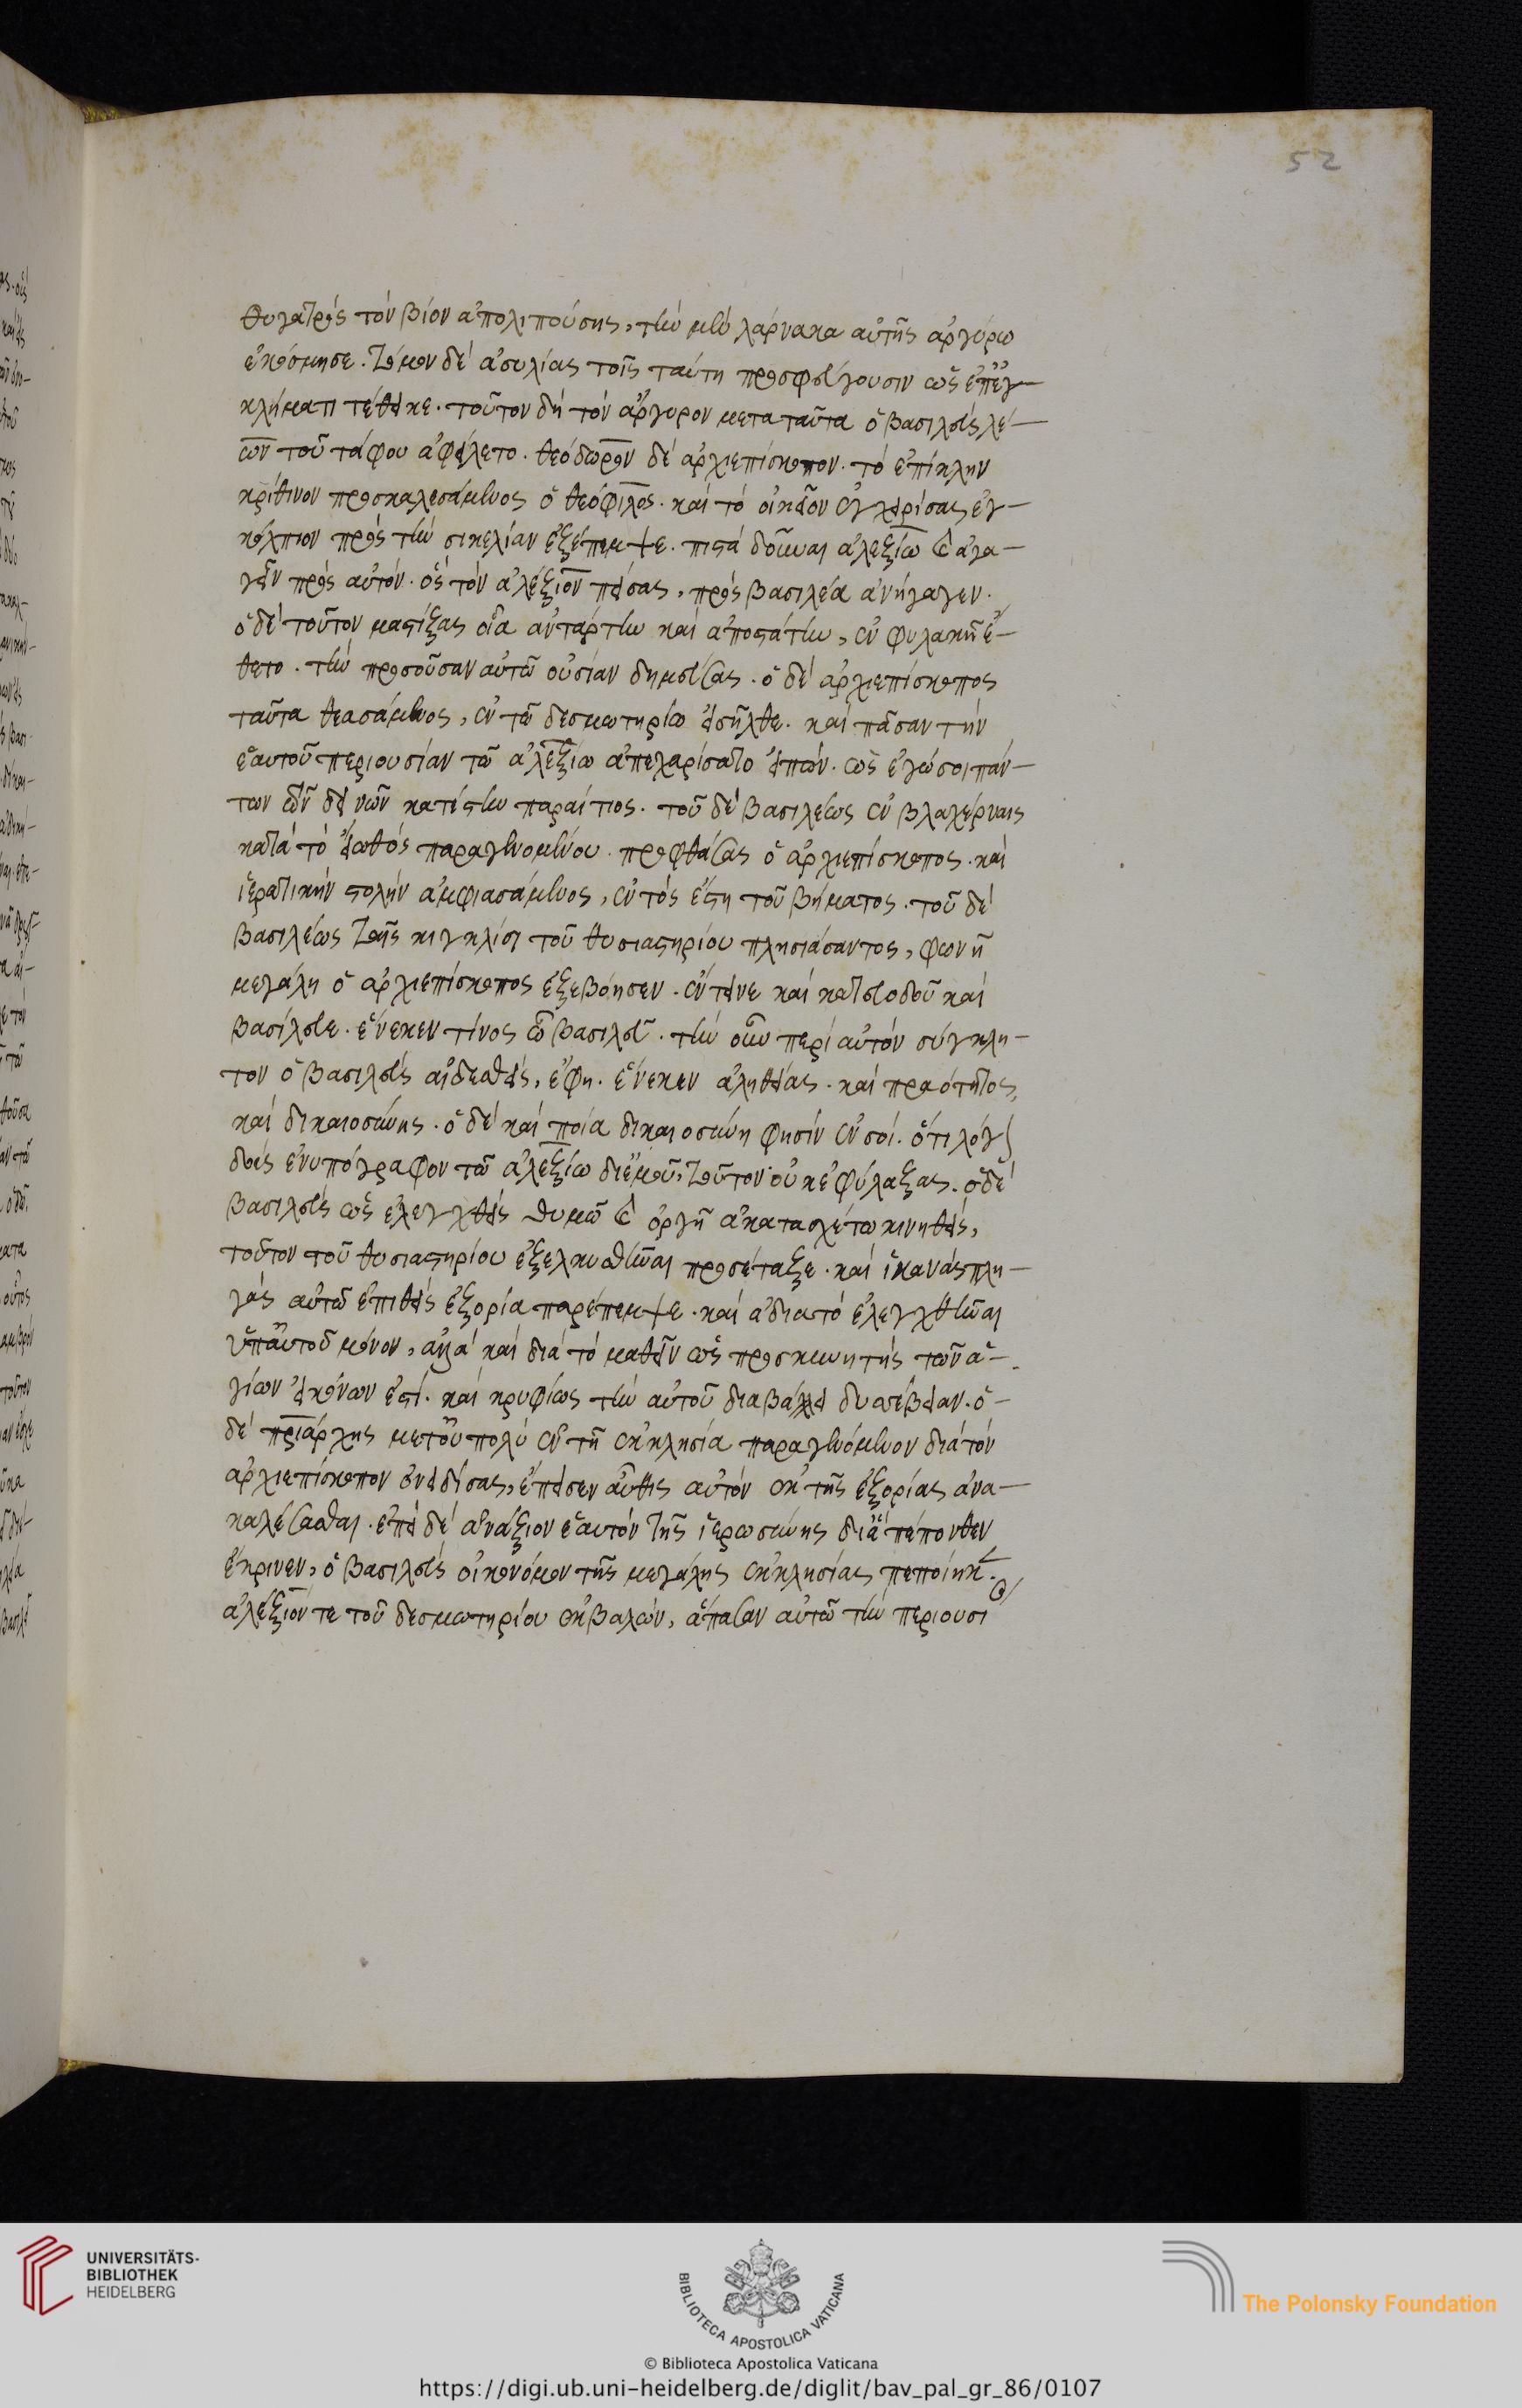 52
θυγατρὸς τὸν βίον ἀπολιπούσης, τὴν μὲν λάρνακα αὐτῆς ἀργύρω
ἐκόσμησε. τόμον δὲ ἀσυλίας τοῖς ταύτη προσφεύγουσιν ὡς ἐπ' ἐγ-
κλήματι τέθεικε. τοῦτον δὴ τὸν ἄργυρον μετα ταῦτα ὁ βασιλεὺς λέ-
ων τοῦ τάφου ἀφείλετο. θεόδωρον δὲ ἀρχιεπίσκοπον. τὸ ἐπίκλην
κρίθινον προσκαλεσάμενος ὁ θεόφιλος. καὶ τὸ οἰκεῖον ἐγχειρίσας ἐγ-
κόλπιον πρὸς τὴν σικελίαν ἐξέπεμψε. πιστὰ δοῦναι ἀλεξίω καὶ ἀγα-
γεῖν πρὸς αὐτόν. ὃς τὸν ἀλέξιον πείσας, πρὸς βασιλέα ἀνήγαγεν.
ὁ δὲ τοῦτον μαστίξας οἷα ἀντάρτην καὶ ἀποστάτην, ἐν φυλακῆ ἔ-
θετο. τὴν προσοῦσαν αὐτῶ οὐσίαν δημεύσας. ὁ δὲ ἀρχιεπίσκοπος
ταῦτα θεασάμενος, ἐν τῶ δεσμωτηρίω εἰσῆλθε. καὶ πᾶσαν τὴν
ἑαυτοῦ περιουσίαν τῶ ἀλεξίω ἀπεχαρίσατο εἰπών. ὡς ἐγώ σοι πάν-
των ὧν δεινῶν κατέστην παραίτιος. τοῦ δὲ βασιλέως ἐν βλαχέρναις
κατὰ τὸ εἰωθὸς παραγενομένου. προφθάσας ὁ ἀρχιεπίσκοπος. καὶ
ἱερατικὴν στολὴν ἀμφιασάμενος, ἐντὸς ἔστη τοῦ βήματος. τοῦ δὲ
βασιλέως τοῖς κιγκλίσι τοῦ θυσιαστηρίου πλησιάσαντος, φωνῆ
μεγάλη ὁ ἀρχιεπίσκοπος ἐξεβόησεν. ἔντεινε καὶ κατευοδοῦ καὶ
βασίλευε. ἕνεκεν τίνος ὦ βασιλεῦ. τὴν οὖν περὶ αὐτὸν σύγκλη-
τον ὁ βασιλεὺς αἰδεσθεὶς, ἔφη. ἕνεκεν ἀληθείας. καὶ πραότητος,
καὶ δικαιοσύνης. ὁ δὲ καὶ ποία δικαιοσύνη φησὶν ἐν σοί. ὅτι λόγον
δοὺς ἐνυπόγραφον τῶ ἀλεξίω δι' ἐμοῦ, τοῦτον οὐκ ἐφύλαξας. ὁ δὲ
βασιλεὺς ὡς ἐλεγχθεὶς θυμῶ καὶ ὀργῆ ἀκατασχέτω κινηθεὶς,
τοῦτον τοῦ θυσιαστηρίου ἐξελκυσθῆναι προσέταξε. καὶ ἱκανὰς πλη-
γὰς αὐτῶ ἐπιθεὶς ἐξορία παρέπεμψε. καὶ ἀ διατὸ ἐλεγχθῆναι
ὑπ' αὐτοῦ μόνον, ἀλλὰ καὶ διὰ τὸ μαθεῖν ὡς προσκυνητὴς τῶν ἁ-
γίων εἰκόνων ἐστί. καὶ κρυφίως τὴν αὐτοῦ διαβάλλει δυσέβειαν. ὁ
δὲ πριάρχης μετ' οὐ πολὺ ἐν τῆ ἐκκλησία παραγενόμενον διὰ τὸν
ἀρχιεπίσκοπον ὀνειδίσας, ἔπεισεν αὖθις αὐτὸν ἐκ τῆς ἐξορίας ἀνα-
καλέσασθαι. ἐπεὶ δὲ ἀνάξιον ἑαυτὸν τῆς ἱερωσύνης δι' ἃ πέπονθεν
ἔκρινεν, ὁ βασιλεὺς οἰκονόμον τῆς μεγάλης ἐκκλησίας πεποίηκε.
ἀλέξιόν τε τοῦ δεσμωτηρίου ἐκβαλὼν, ἅπασαν αὐτῶ τὴν περιουσι
UNIVERSITÄTS-
BIBLIOTHEK
HEIDELBERG
BIBLIOTECA APOSTOLICA VATICANA
The Polonsky Foundation
© Biblioteca Apostolica Vaticana
https://digi.ub.uni-heidelberg.de/diglit/bav_pal_gr_86/0107